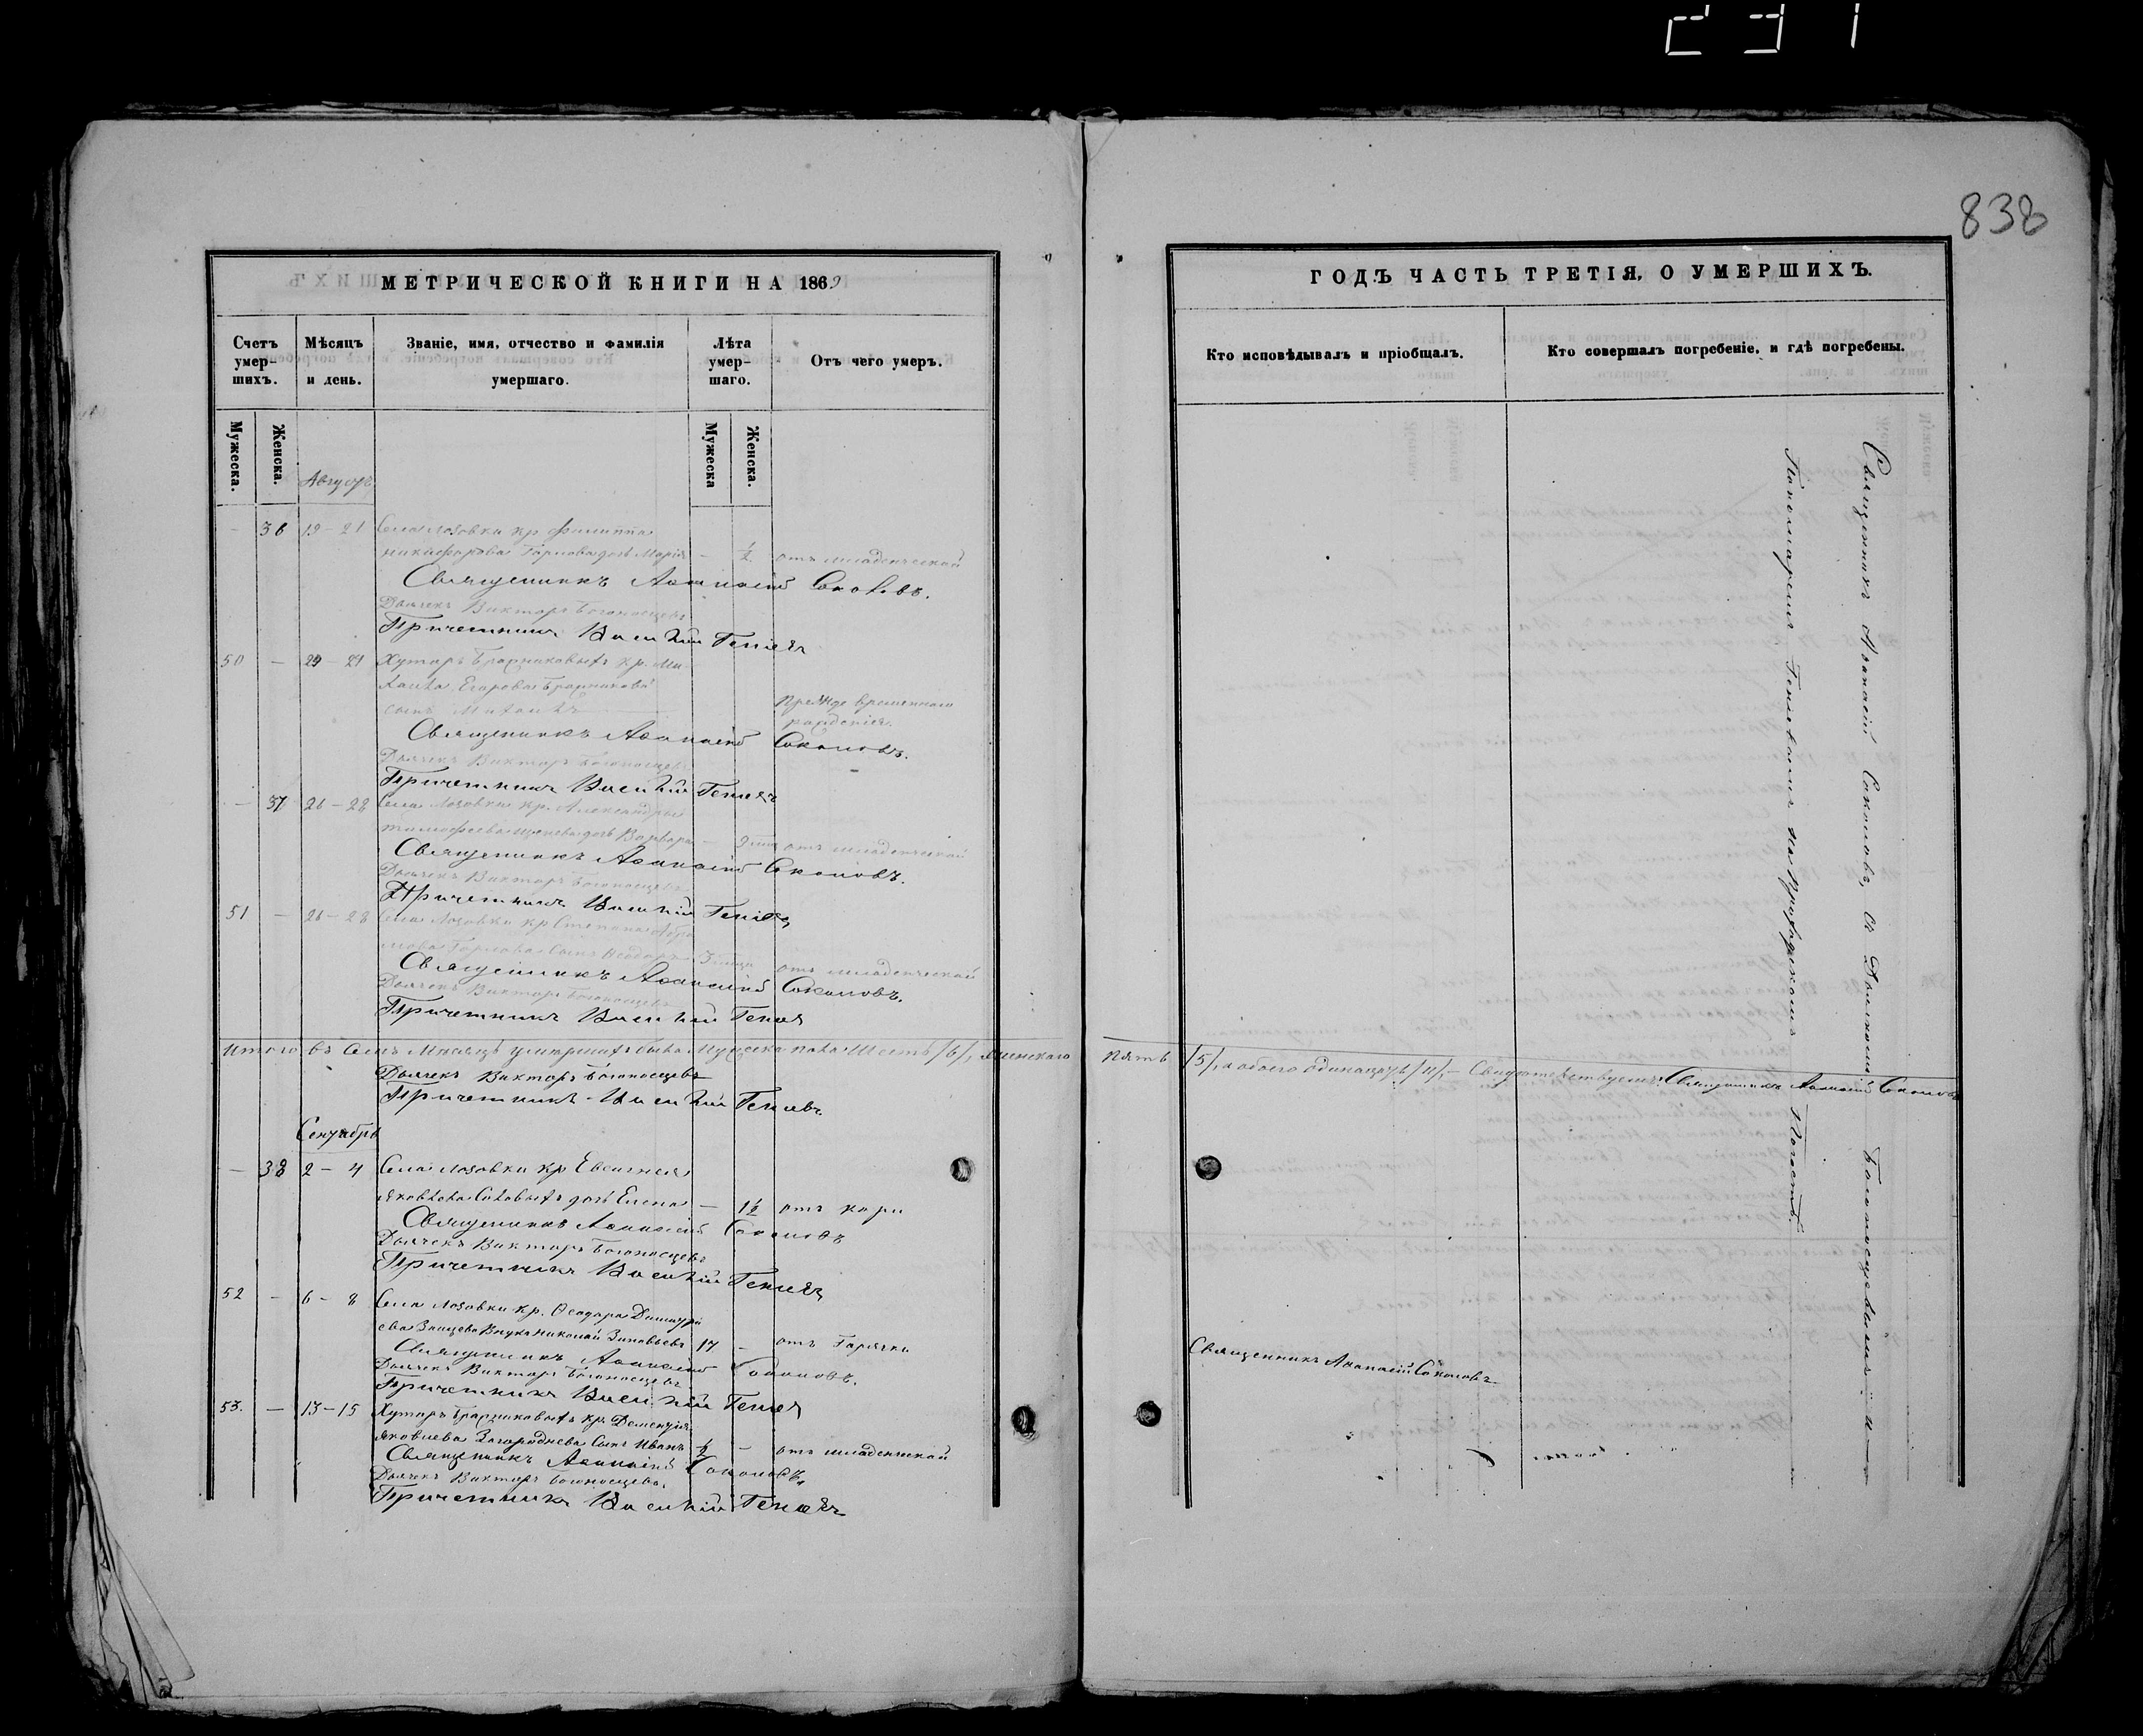 231
838
МЕТРИЧЕСКОЙ КНИГИ НА 1869
Счетъ умер-шихъ.
Мѣсяцъ и день.
Званіе, имя, отчество и фамилія умершаго.
Лѣта умер-шаго.
Отъ чего умеръ.
Мужеска.
Женска.
Мужеска
Женска.
Августъ
– 36 19–21 Села Лозовки кр Филиппа
Никифорова Горлова дочь Марія – ½ отъ младенческой
Священникъ Аѳанасій Соколовъ.
Дьячекъ Викторъ Богоносцевъ
Причетникъ Василій
50 – 29–29 Хуторъ Бражниковыхъ кр. Ми-
хаила Егорова Бражникова
сынъ Михаилъ Прежде временнаго
рожденія.
Священникъ Аѳанасій Соколовъ.
Дьячекъ Викторъ Богоносцевъ
Причетникъ Василій
– 37 26–28 Села Лозовки кр. Александры
Тимофеева дочь Варвара – отъ младенческой
Священникъ Аѳанасій Соколовъ.
Дьячекъ Викторъ Богоносцевъ
Причетникъ Василій
51 – 26–28 Села Лозовки кр Степана
Горлова Сынъ Ѳеодоръ 3 отъ младенческой
Священникъ Аѳанасій Соколовъ.
Дьячекъ Викторъ Богоносцевъ
Причетникъ Василій
Итого въ семъ Мѣсяцѣ умершихъ было Мужеска пола Шесть /6/, женскаго
Дьячекъ Викторъ Богоносцевъ
Причетникъ Василій
Сентябрь
– 38 2–4 Села Лозовки кр
Яковлева дочь Елена – 1½ отъ кори
Священникъ Аѳанасій Соколовъ
Дьячекъ Викторъ Богоносцевъ
Причетникъ Василій
52 – 6–8 Села Лозовки кр. Ѳеодора
Заицева внукъ Николай Зиновьевъ 17 – отъ Горячки
Священникъ Аѳанасій Соколовъ.
Дьячекъ Викторъ Богоносцевъ
Причетникъ Василій
53. – 13–15 Хуторъ Бражниковыхъ кр. Дементія
Яковлева Загороднева Сынъ Иванъ ½ – отъ младенческой
Священникъ Аѳанасій Соколовъ.
Дьячекъ Викторъ Богоносцевъ.
Причетникъ Василій
ГОДЪ ЧАСТЬ ТРЕТІЯ, О УМЕРШИХЪ.
Кто исповѣдывалъ и пріобщалъ.
Кто совершалъ погребеніе, и гдѣ погребены.
Священникъ Аѳанасій Соколовъ, съ Дьячкомъ Богоносцевымъ и
Пономаремъ на Приходскомъ Погостѣ.
пять /5/, а обоего одинацать /11/, – Свидѣтельствуемъ: Священникъ Аѳанасій Соколовъ
Священникъ Аѳанасій Соколовъ